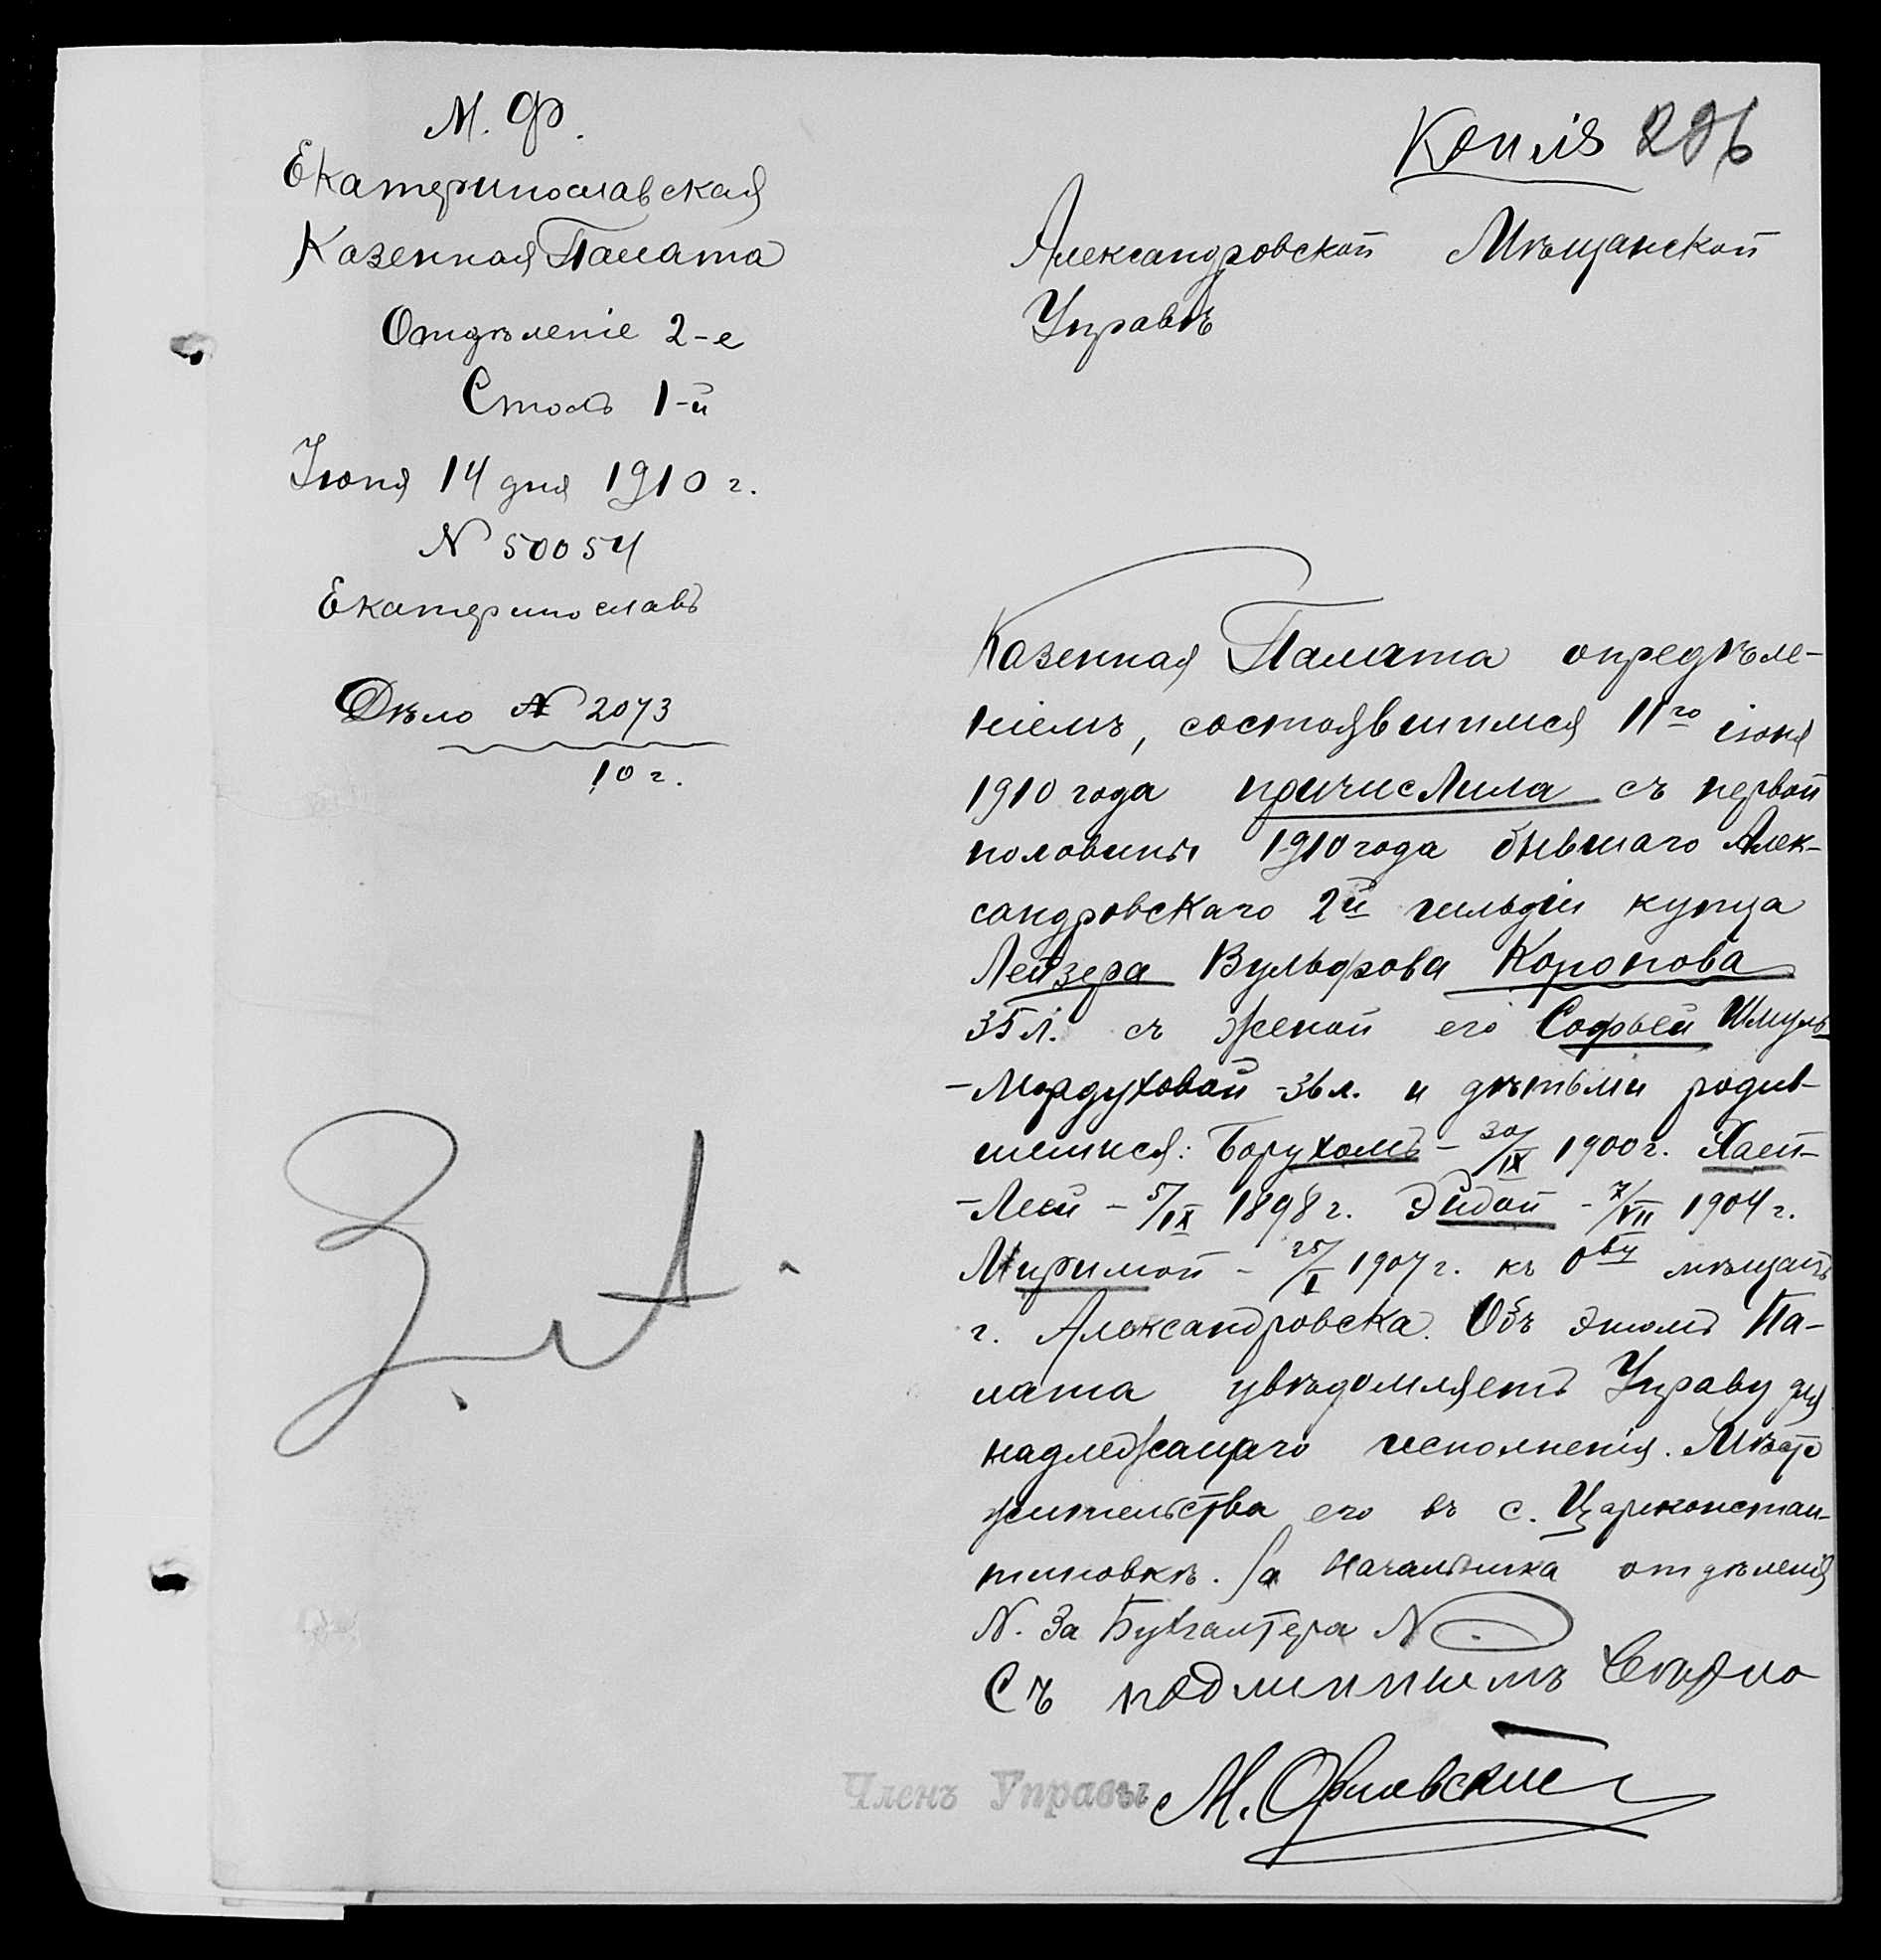 М. Ф.
Екатеринославская
Казенная Палата
Отдѣленіе 2-е
Столъ 1-й
Іюня 14 дня 1910 г.
N 50054
Екатеринославъ
Дѣло N 2073
10 г.
Копія
Александровской Мѣщанской
Управѣ
Казенная Палата опредѣле-
ніемъ, состоявшимся 11го іюня
1910 года причислила съ первой
половины 1910 года бывшаго Алек-
сандровскаго 2й гильдіи купца
Лейзера Вульфова Коропова
35 л. съ женой его Софьей Шмуль
-Мордуховой -36 л. и дѣтьми родив-
шимися: Борухомъ - 30/IX 1900 г. Хаей-
-Леей - 5/IX 1898 г. Эйдой - 7/VII 1904 г.
Миримой - 25/I 1907 г. къ Обву мѣщанъ
г. Александровска. Объ этомъ Па-
лата увѣдомляетъ Управу для
надлежащаго исполненія. Мѣсто
жительства его въ с. Цареконстан-
тиновкѣ. За Начальника отдѣленія
N. За Бухгалтера N
Съ подлиннымъ вѣрно
Членъ Управы М. Орловскій